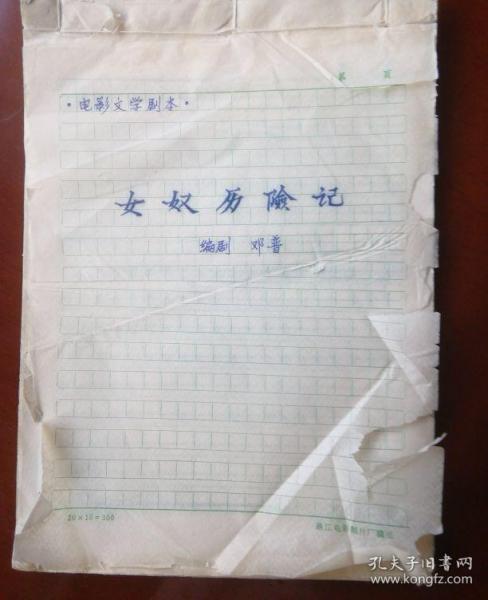 第 页
·电影文学剧本·
女奴历險记
编剧 邓普
20×15=300
浙江电影制片厂稿纸
孔夫子旧书网
www.kongfz.com